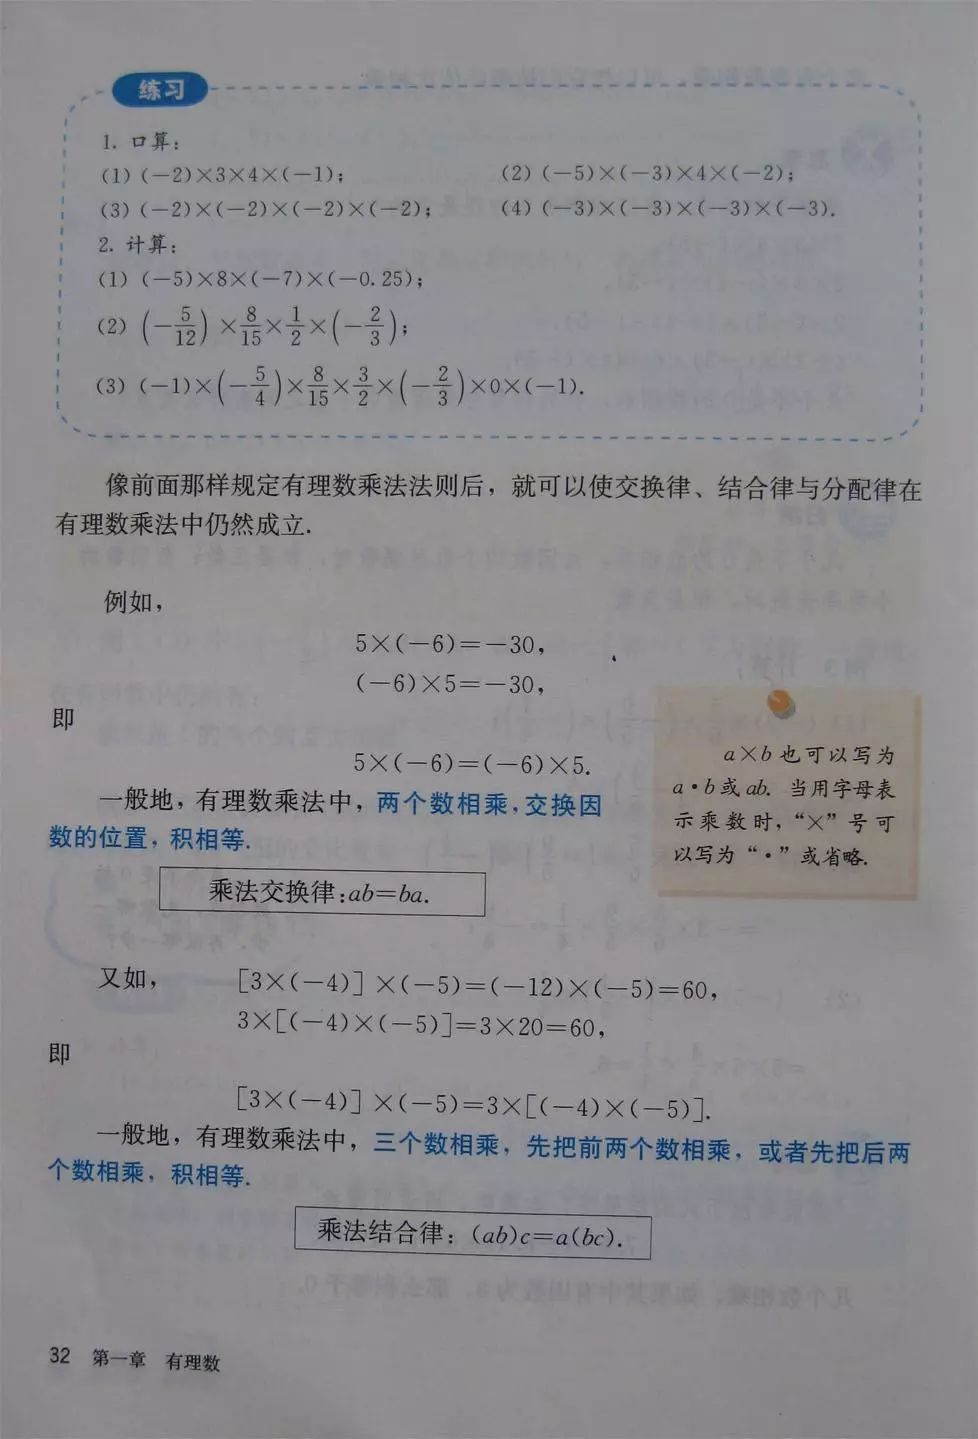 练习
1. 口算:
(1) (-2)×3×4×(-1); (2) (-5)×(-3)×4×(-2);
(3) (-2)×(-2)×(-2)×(-2); (4) (-3)×(-3)×(-3)×(-3).
2. 计算:
(1) (-5)×8×(-7)×(-0.25);
(2) (-5/12)×8/15×1/2×(-2/3);
(3) (-1)×(-5/4)×8/15×3/2×(-2/3)×0×(-1).
像前面那样规定有理数乘法法则后，就可以使交换律、结合律与分配律在
有理数乘法中仍然成立.
例如，
5×(-6)=-30,
(-6)×5=-30,
即
5×(-6)=(-6)×5.
一般地，有理数乘法中，两个数相乘，交换因
数的位置，积相等.
乘法交换律:ab=ba.
a×b也可以写为
a·b或ab. 当用字母表
示乘数时，“×”号可
以写为“·”或省略.
又如， [3×(-4)]×(-5)=(-12)×(-5)=60,
3×[(-4)×(-5)]=3×20=60,
即
[3×(-4)]×(-5)=3×[(-4)×(-5)].
一般地，有理数乘法中，三个数相乘，先把前两个数相乘，或者先把后两
个数相乘，积相等.
乘法结合律: (ab)c=a(bc).
32 第一章 有理数